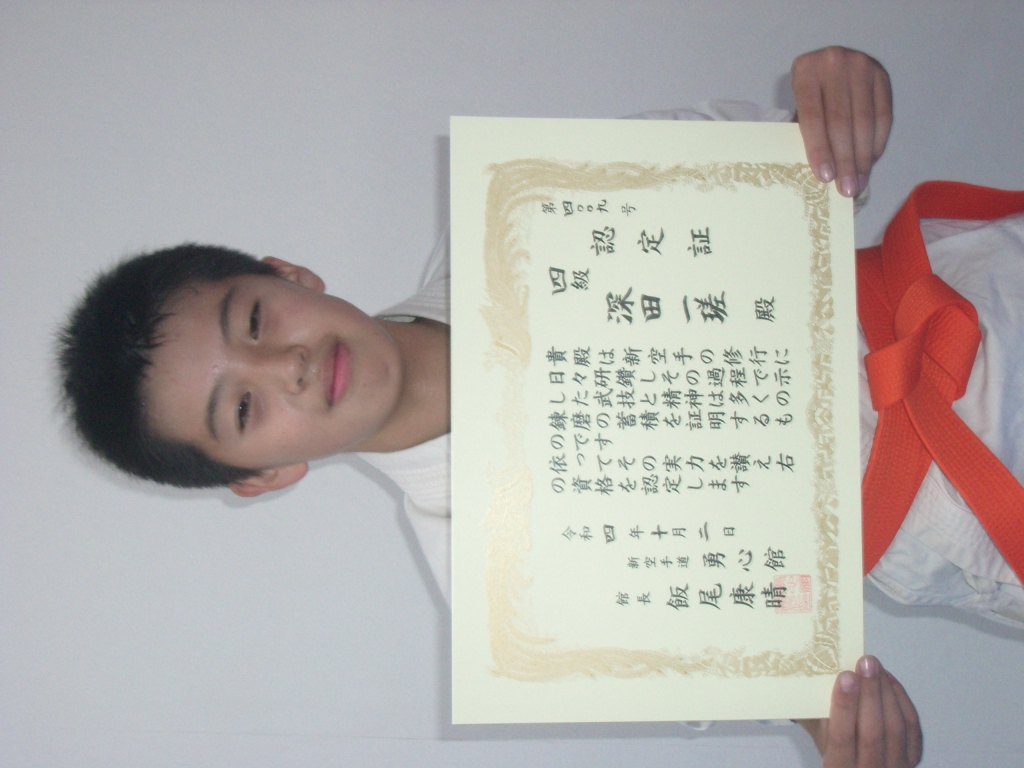 第四〇〇九号
認定証
四級
深田一瑳 殿
貴殿は新空手の修行に
日々研鑽しその過程で示
した武技と精神は多くの
錬磨の蓄積を証明するも
のです
依ってその実力を讃え右
の資格を認定します
令和四年十月二日
新空手道 勇心館
館長 飯尾康晴